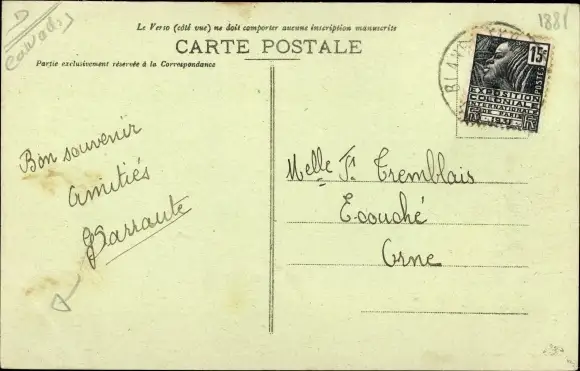 Le Verso (côté vue) ne doit comporter aucune inscription manuscrite
CARTE POSTALE
Partie exclusivement réservée à la Correspondance
D
Calvados
1881
15c
POSTES
EXPOSITION
COLONIALE
INTERNATIONALE
DE PARIS
1931
Bon souvenir
amitiés
Barraute
Melle Tremblais
Ecouché
Orne